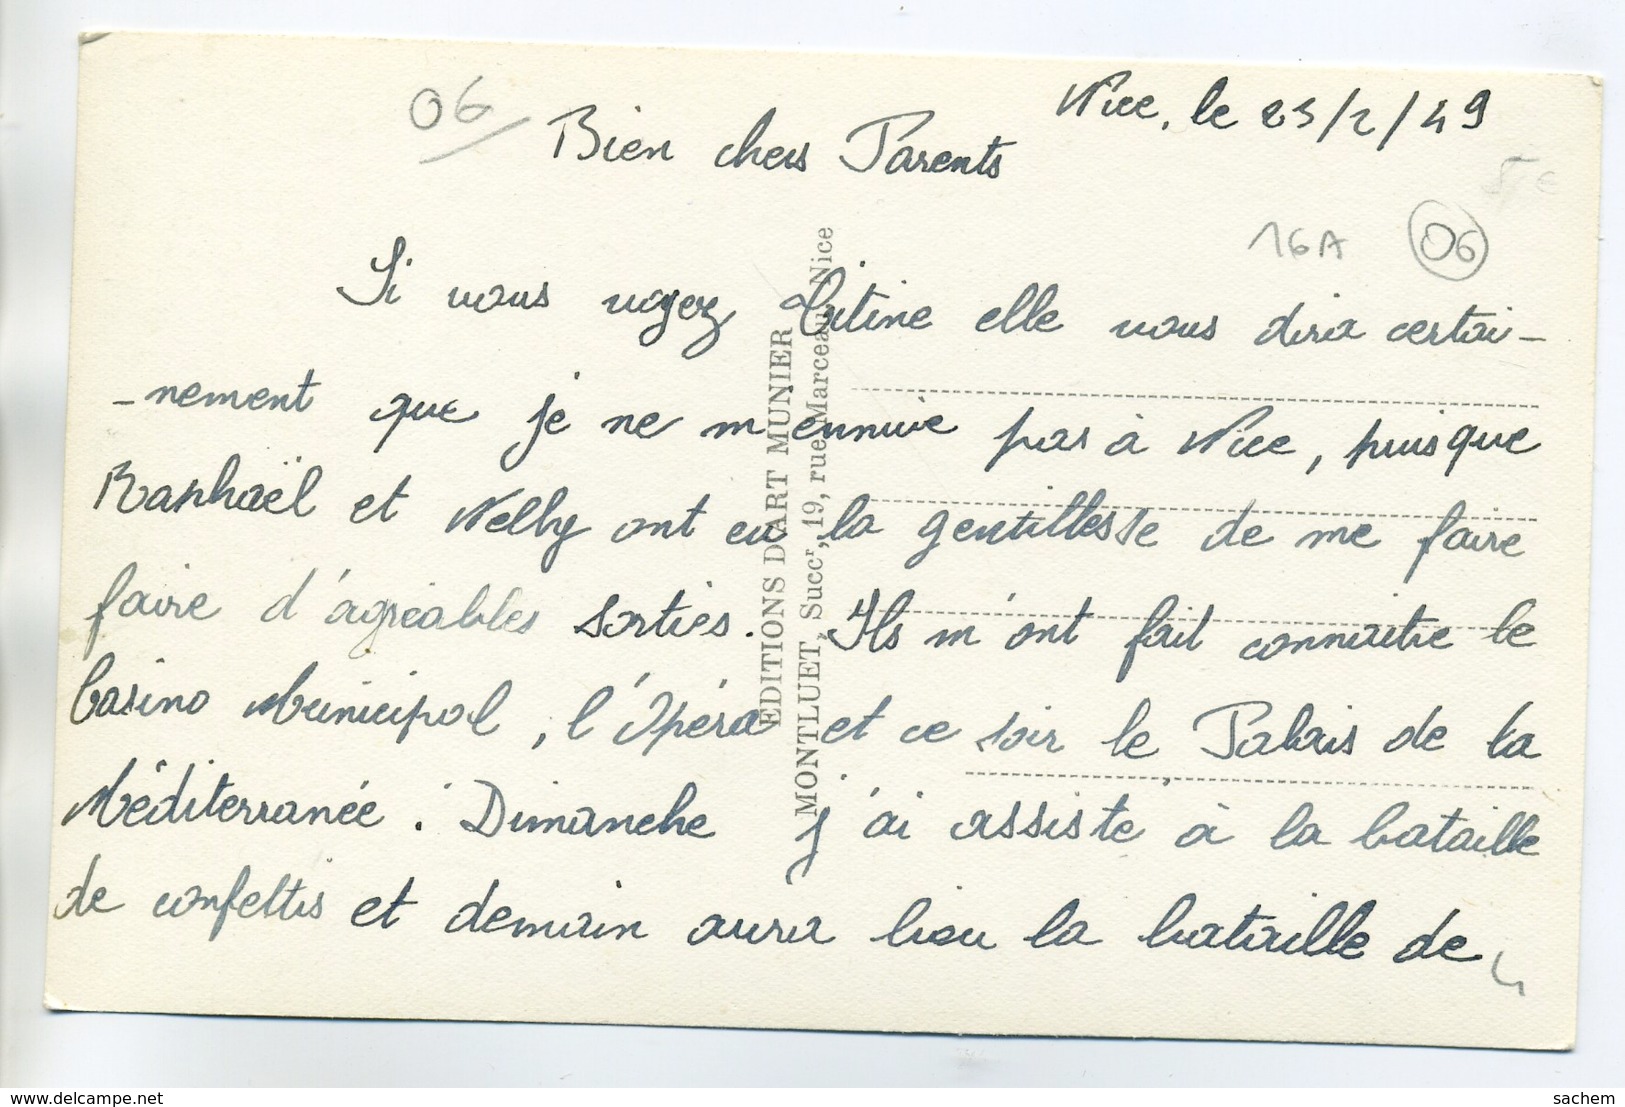 Nice, le 23/2/49
06
Bien chers Parents
5 €
16A 06
Si vous voyez Titine elle vous dira certai-
-nement que je ne m'ennuie pas à Nice, puisque
Raphaël et Nelly ont eu la gentillesse de me faire
faire d'agréables sorties. Ils m'ont fait connaitre le
Casino Municipal, l'Opéra et ce soir le Palais de la
Méditerranée. Dimanche j'ai assisté à la bataille
de confettis et demain aura lieu la bataille de
EDITIONS D'ART MUNIER
MONTLUET, Succr, 19, rue Marceau, Nice
www.delcampe.net
sachem